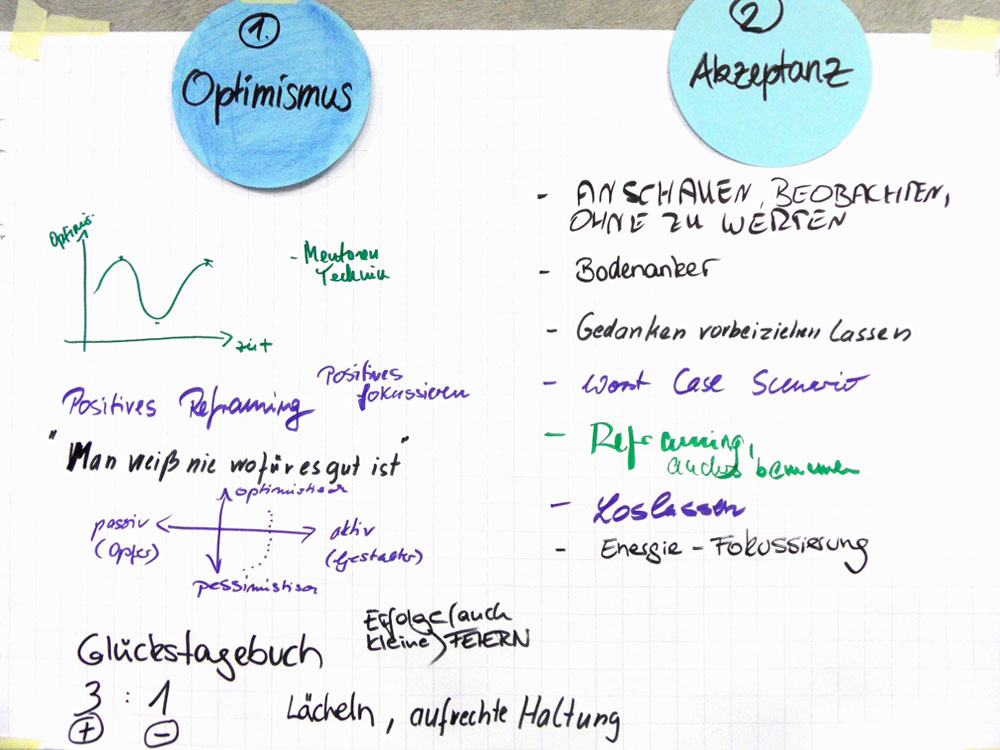 1.
Optimismus
Optimis.
- Mentoren
Technik
zeit
Positives Reframing
Positives
fokussieren
"Man weiß nie wofür es gut ist"
optimistisch
passiv
(Opfer)
aktiv
(Gestalter)
pessimistisch
Glückstagebuch
Erfolge (auch
kleine) FEIERN
3 : 1
+ -
Lächeln, aufrechte Haltung
2
Akzeptanz
- ANSCHAUEN, BEOBACHTEN,
OHNE ZU WERTEN
- Bodenanker
- Gedanken vorbeiziehen lassen
- Worst Case Scenerio
- Reframing,
anders benennen
- Loslassen
- Energie - Fokussierung